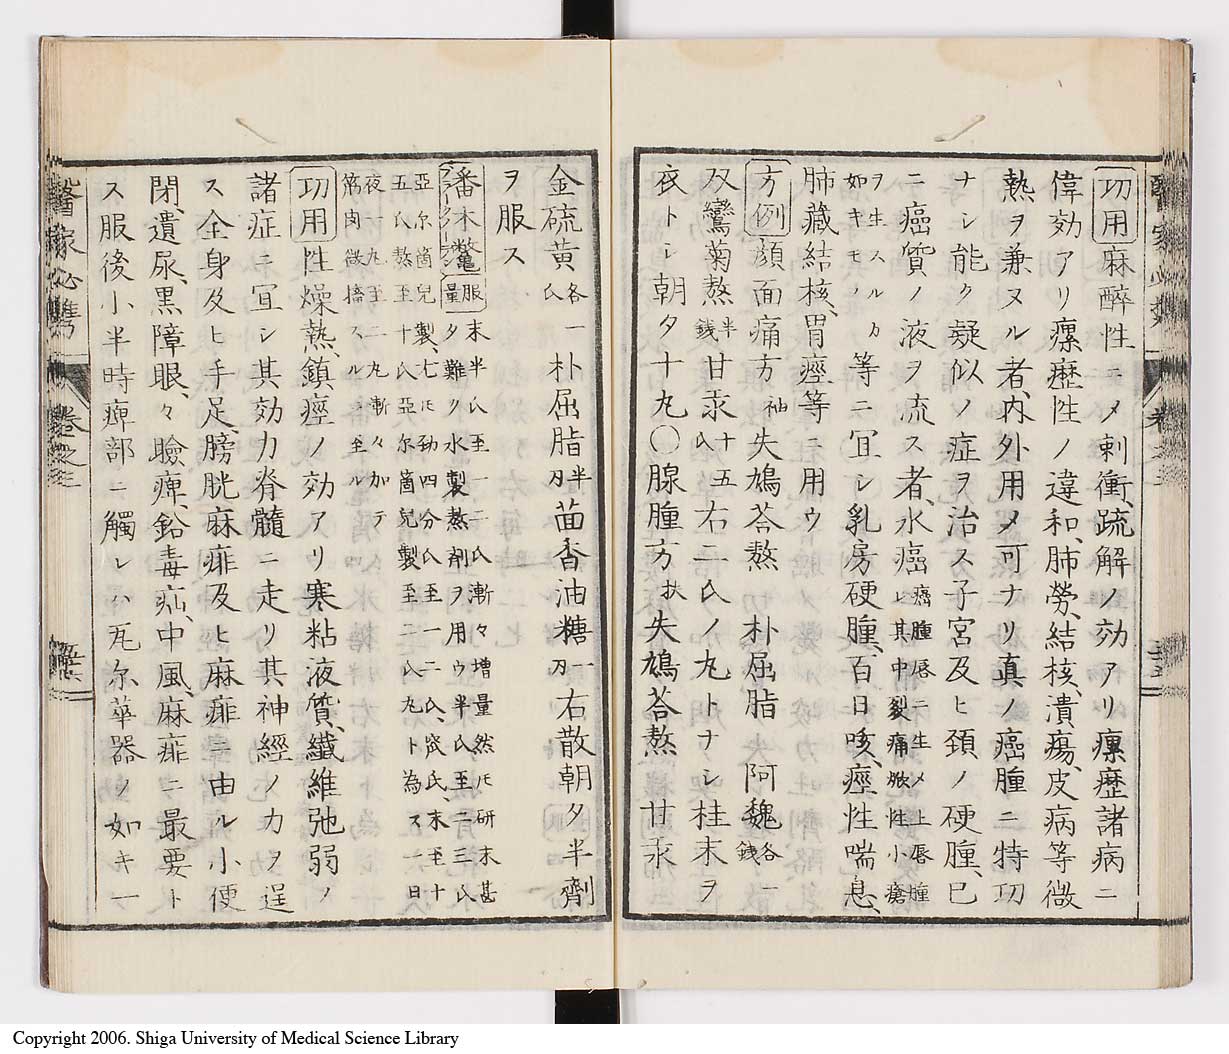 功用麻醉性ニメ刺衝、疏解ノ効アリ瘰癧諸病ニ
偉効アリ瘰癧性ノ違和、肺勞、結核、潰瘍、皮病等微
熱ヲ兼ヌル者、内外用メ可ナリ真ノ癌腫ニ特功
ナシ能ク疑似ノ症ヲ治ス子宮及ヒ頚ノ硬腫、已
ニ癌質ノ液ヲ流ス者、水癌 癌腫唇ニ生メ上唇腫
レ其中裂痛膿性小瘡
ヲ生スルカ
如キモノ 等ニ宜シ乳房硬腫、百日咳、痙性喘息、
肺藏結核、胃痙等ニ用ウ
方例 顔面痛方 袖 失鳩荅熬 朴屈脂 阿魏 各一
錢
双鸞菊熬 半
錢 甘汞 十五
氏 右二氏ノ丸トナシ桂末ヲ
衣トシ朝夕十丸〇腺腫方 扶 失鳩荅熬 甘汞
金硫黄 各一
氏 朴屈脂 半
刄 茴香油糖 一
刄 右散朝夕半劑
ヲ服ス
潘木鼈 服量 末半氏至一二氏漸々増量然㪽研末甚
タ難ク水製熬劑ヲ用ウ半氏至二三氏
亞尓箇兒製、七㪽効四分氏至一二氏、
五氏熬至十氏亞尓箇兒製至二八丸ト為ス一日
夜一丸至二丸漸々加テ
筋肉微搐スルニ至ル
功用 性燥熱、鎮痙ノ効アリ寒粘液質、纎維弛弱ノ
諸症ニ宜シ其効力脊髓ニ走リ其神經ノカヲ逞
ス全身及ヒ手足膀胱麻痱及ヒ麻痱ニ由ル小便
閉、遺尿、黒障眼、々瞼痺、鉛毒疝、中風、麻痱ニ最要ト
ス服後小半時痺部ニ觸レハ瓦尓華器ノ如キ一
醫家必携 卷之三
Copyright 2006. Shiga University of Medical Science Library